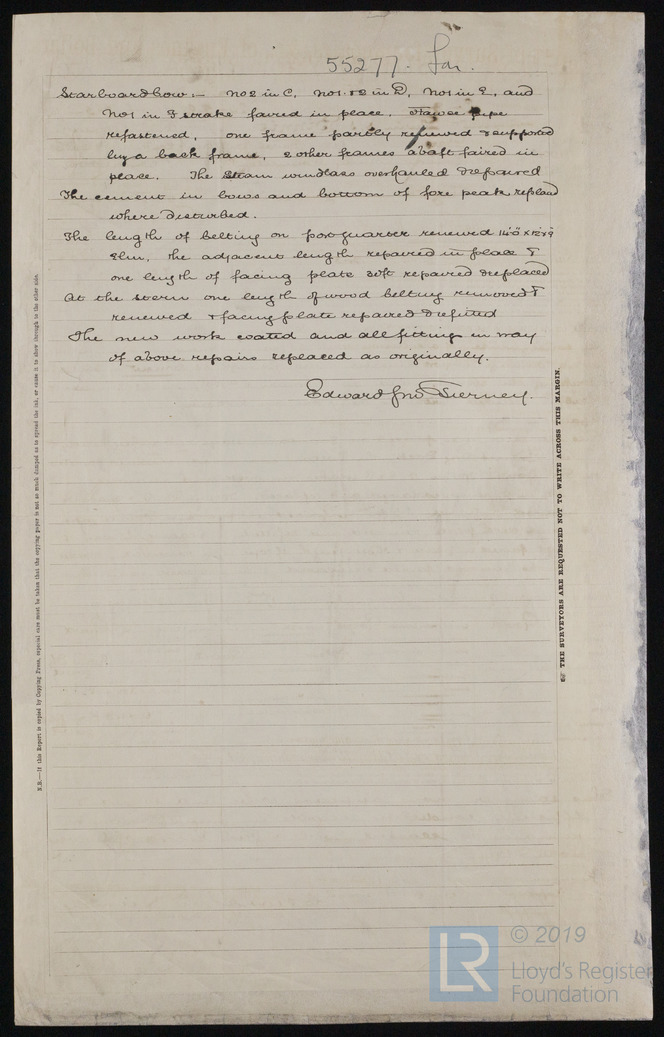 55277. Lon.
Starboard bow :- No 2 in C, Nos 1 & 2 in D, No 1 in E, and
No 1 in F strake faired in place. Hawse pipe
refastened, one frame partly renewed & supported
by a back frame, 2 other frames abaft faired in
place. The Steam windlass overhauled & repaired
The cement in bows and bottom of fore peak replaced
where disturbed.
The length of belting on port quarter renewed 14'0" x 12" x 9"
Elm, the adjacent length repaired in place &
one length of facing plate 20ft repaired & replaced
At the stern one length of wood belting removed &
renewed & facing plate repaired & refitted
The new work coated and all fittings in way
of above repairs replaced as originally.
Edward Jno Tierney.
N.B.—If this Report is copied by Copying Press, especial care must be taken that the copying paper is not so much damped as to spread the ink, or cause it to show through to the other side.
THE SURVEYORS ARE REQUESTED NOT TO WRITE ACROSS THIS MARGIN.
LR
© 2019
Lloyd's Register
Foundation